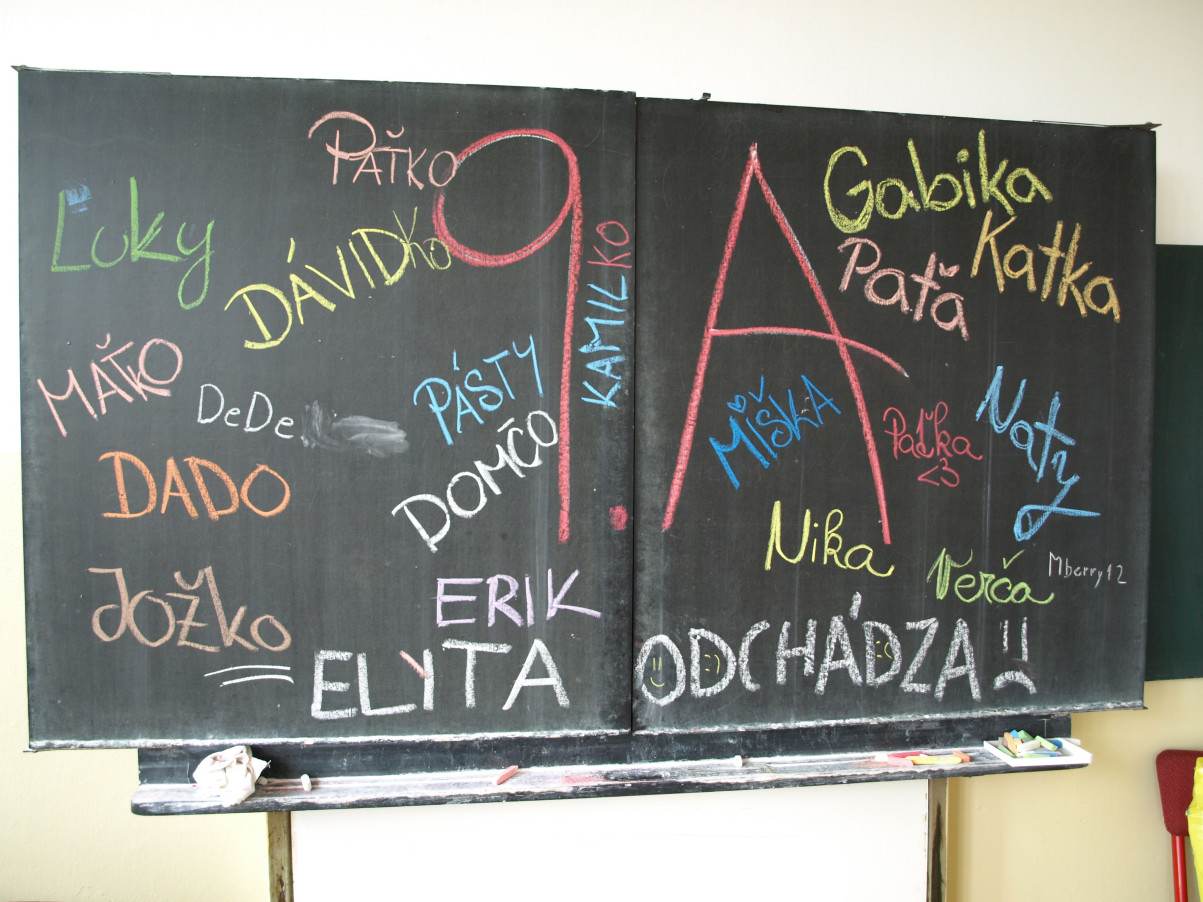 Paťko
Ľuky
DÁVIDko
9.A
KAMILKO
MAŤKO
DeDe
PÁSTY
DOMČO
DADO
JOŽko
ERIK
Gabika
Katka
Paťa
MIŠKA
Paťka
<3
Naty
Nika
Verča
Mberry12
ELYTA ODCHÁDZA :(